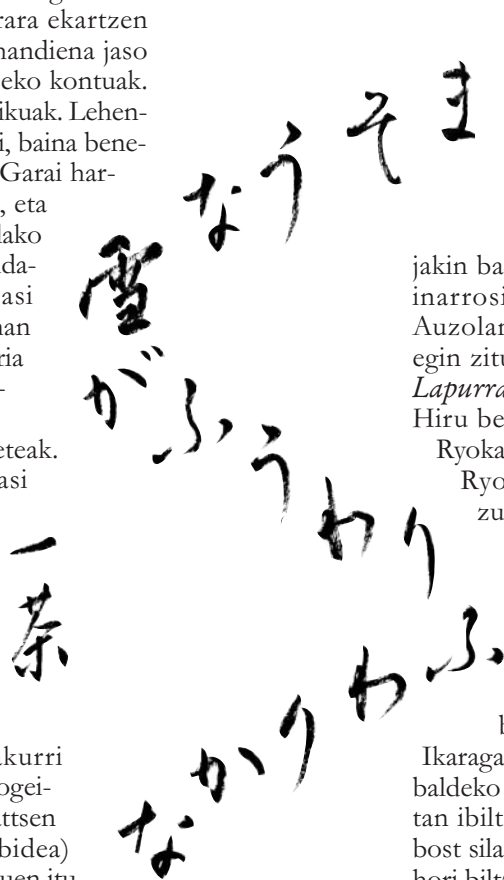 rara ekartzen
handiena jaso
eko kontuak.
ikuak. Lehen-
i, baina bene-
Garai har-
, eta
lako
da-
asi
nan
ria
-
eteak.
asi
まそうな
雪がふうわり
ふわりかな
一茶
akurri
ogei-
attsen
bidea)
uen itu
jakin ba
inarrosi
Auzolar
egin zitu
Lapurra
Hiru be
Ryoka
Ryo
zu
b
Ikaraga
baldeko
tan ibilt
bost sila
hori bilt